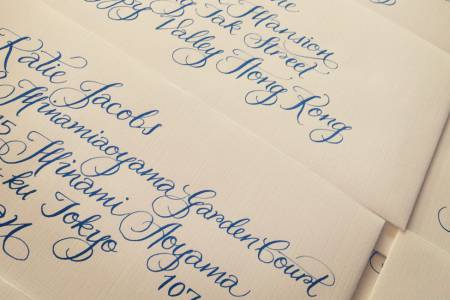 Mansion
Tak Street
Valley Hong Kong
Katie Jacobs
Minamiaoyama Garden Court
Minami Aoyama
ku Tokyo
107